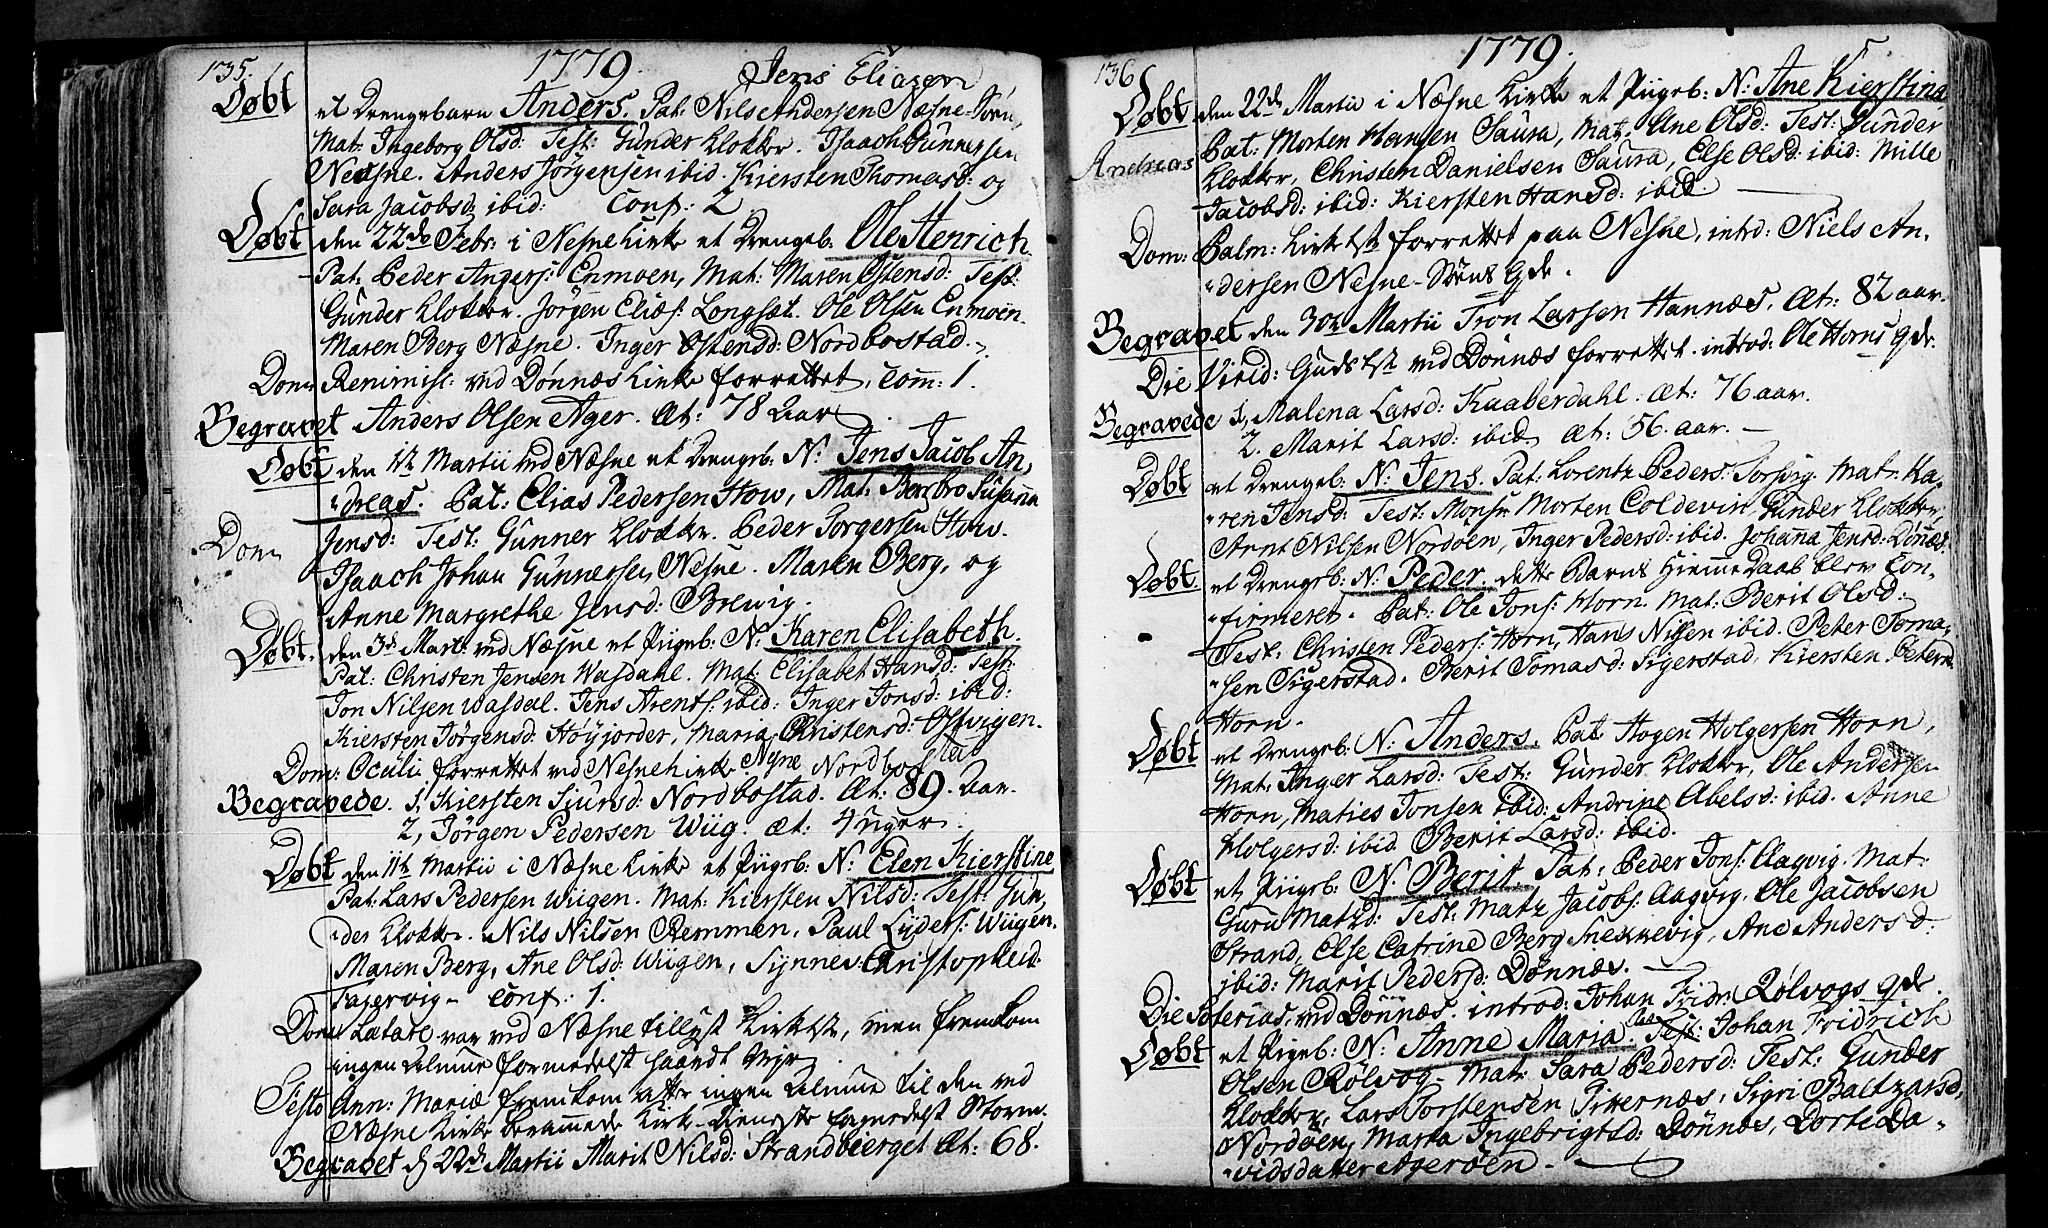 135.
1779.
Jens Eliasen
Døbt et Drengebarn Anders. Pat: Nils Andersen Næsne-Søen,
Mat: Ingeborg Olsd: Test: Gunder Klokker. Isaach Gunnersen
Nesne. Anders Jørgensen ibid. Kiersten Thomasd: og
Sara Jacobsd: ibid: Conf: 2
Døbt den 22de Febr: i Nesne Kirke et Drengeb: Ole Henrich.
Pat: Peder Angers: Enmoen, Mat: Maren Ostensd: Test:
Gunder Klokker. Jørgen Elies: Longset. Ole Olsen Enmoen.
Maren Berg Næsne. Inger Ostensd: Nordbostad.
Dom: Reminis: ved Dønnæs Kirke forrettet, Com: 1.
Begravet Anders Olsen Ager. Æt: 78 Aar.
Døbt den 1te Martii ved Næsne et Drengeb: N: Jens Jacob An,
dreas. Pat: Elias Pedersen How, Mat: Berebro Susanna
Jensd: Test: Gunner Klokker. Peder Jørgersen How.
Dom
Isaach Johan Gunnersen Nesne. Maren Berg, og
Anne Margrethe Jensd: Brevig.
Døbt. den 3de Mart: ved Næsne et Piigeb: N: Karen Elisabeth.
Pat: Christen Jensen Wasdahl. Mat: Elisabet Hansd: Test:
Jon Nilsen Wasdal. Jens Arents: ibid: Inger Jonsd: ibid:
Kiersten Jørgensd: Høyjorder, Maria Christensd: Ostvigen.
Dom: Oculi forrettet ved Nesne Kirke
Begravede. 1, Kiersten Siursd: Nordbostad. Æt: 89. Aar.
2, Jørgen Pedersen Wiig. æt: 4 uger.
Døbt den 11te Martii i Næsne Kirke et Piigeb: N: Elen Kierstine
Pat: Lars Pedersen Wiigen. Mat: Kiersten Nilsd: Test: Gun,
der Klokker. Nils Nilsen Remmen, Paul Lyders: Wiigen,
Maren Berg, Ane Olsd: Wiigen, Synnev: Christophersd:
Fagervig. Conf: 1.
Dom: Lætare var ved Næsne tillyst Kirke, men fremkom
ingen Almue formedelst haardt Vejr
Festo Ann: Mariæ fremkom atter ingen Almue til den ved
Næsne Kirke berammede Kirke-Tieneste formedelst Storm.
Begravet d 22de Martii Marit Nilsd: Strandbierget Æt: 68.
136
1779.
Døbt den 22de Martii i Næsne Kirke et Piigeb: N: Ane Kierstina
Andreas
Pat: Morten Hansen Saura, Mat: Ane Olsd: Test: Gunder
Klokker, Christen Danielsen Saura, Else Olsd: ibid: Mille
Jacobsd: ibid: Kiersten Hansd: ibid.
Dom: Palm: Kirket: forrettet paa Nesne, introd: Niels An,
dersen Nesne-Søens Qde.
Begravet den 30te Martii Tron Larsen Hannæs. Æt: 82 aar.
Die Virid: Gudst: ved Dønnæs forrettet. introd: Ole Horns qde.
Begravede 1, Malena Larsd: Kaaberdahl. æt: 76 aar.
2. Marit Larsd: ibid. æt: 56. aar.
Døbt et Drengeb: N: Jens. Pat: Lorentz Peders: Sorsvig. Mat: Ka,
ren Jensd: Test: Monsr Morten Coldevin, Gunder Klokker,
Arnt Nilsen Nordøen, Inger Pedersd: ibid. Johanna Jensd: Dønæs.
Døbt et Drengeb: N: Peder. dette Barns Hiemme Daab blev Con,
firmeret. Pat: Ole Jons: Horn. Mat: Berit Olsd:
Test: Christen Peders: Horn, Hans Nilsen ibid. Peter Toma,
sen Sigerstad. Berit Tomasd: Sigerstad, Kiersten Petersd:
Horn.
Døbt et Drengeb: N: Anders. Pat: Hogen Holgersen Horn,
Mat: Inger Larsd: Test: Gunder Klokker, Ole Andersen
Horn, Maties Jonsen ibid: Andrine Abelsd: ibid. Anne
Holgersd: ibid. Berit Larsd: ibid.
Døbt et Piigeb: N. Berit. Pat: Peder Jons: Aagvig. Mat:
Guru Matzd: Test: Matz Jacobs: Aagvig. Ole Jacobsen
Strand, Else Catrine Berg Snekkevig, Ane Andersd:
ibid: Marit Pedersd: Dønnæs.
Die Soterias, ved Dønnæs. introd: Johan Fridr: Rølvogs qde.
Døbt et Pigeb: N: Anne Maria. Pat: Johan Fridrich
Olsen Rølvog. Mat: Sara Pedersd: Test: Gunder
Klokker, Lars Torstensen Pikernæs, Sigri Baltzarsd,
Nordøen, Marta Ingebrigtsd: Dønnæs, Dorte Da,
vidsdatter Agerøen.